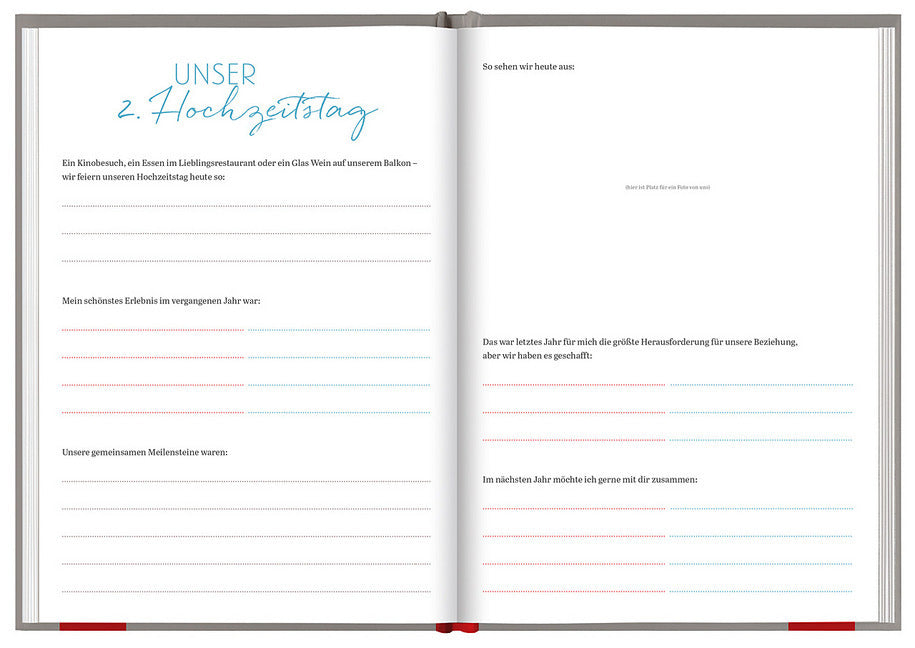 UNSER
2. Hochzeitstag
Ein Kinobesuch, ein Essen im Lieblingsrestaurant oder ein Glas Wein auf unserem Balkon –
wir feiern unseren Hochzeitstag heute so:
Mein schönstes Erlebnis im vergangenen Jahr war:
Unsere gemeinsamen Meilensteine waren:
So sehen wir heute aus:
(hier ist Platz für ein Foto von uns)
Das war letztes Jahr für mich die größte Herausforderung für unsere Beziehung,
aber wir haben es geschafft:
Im nächsten Jahr möchte ich gerne mit dir zusammen: